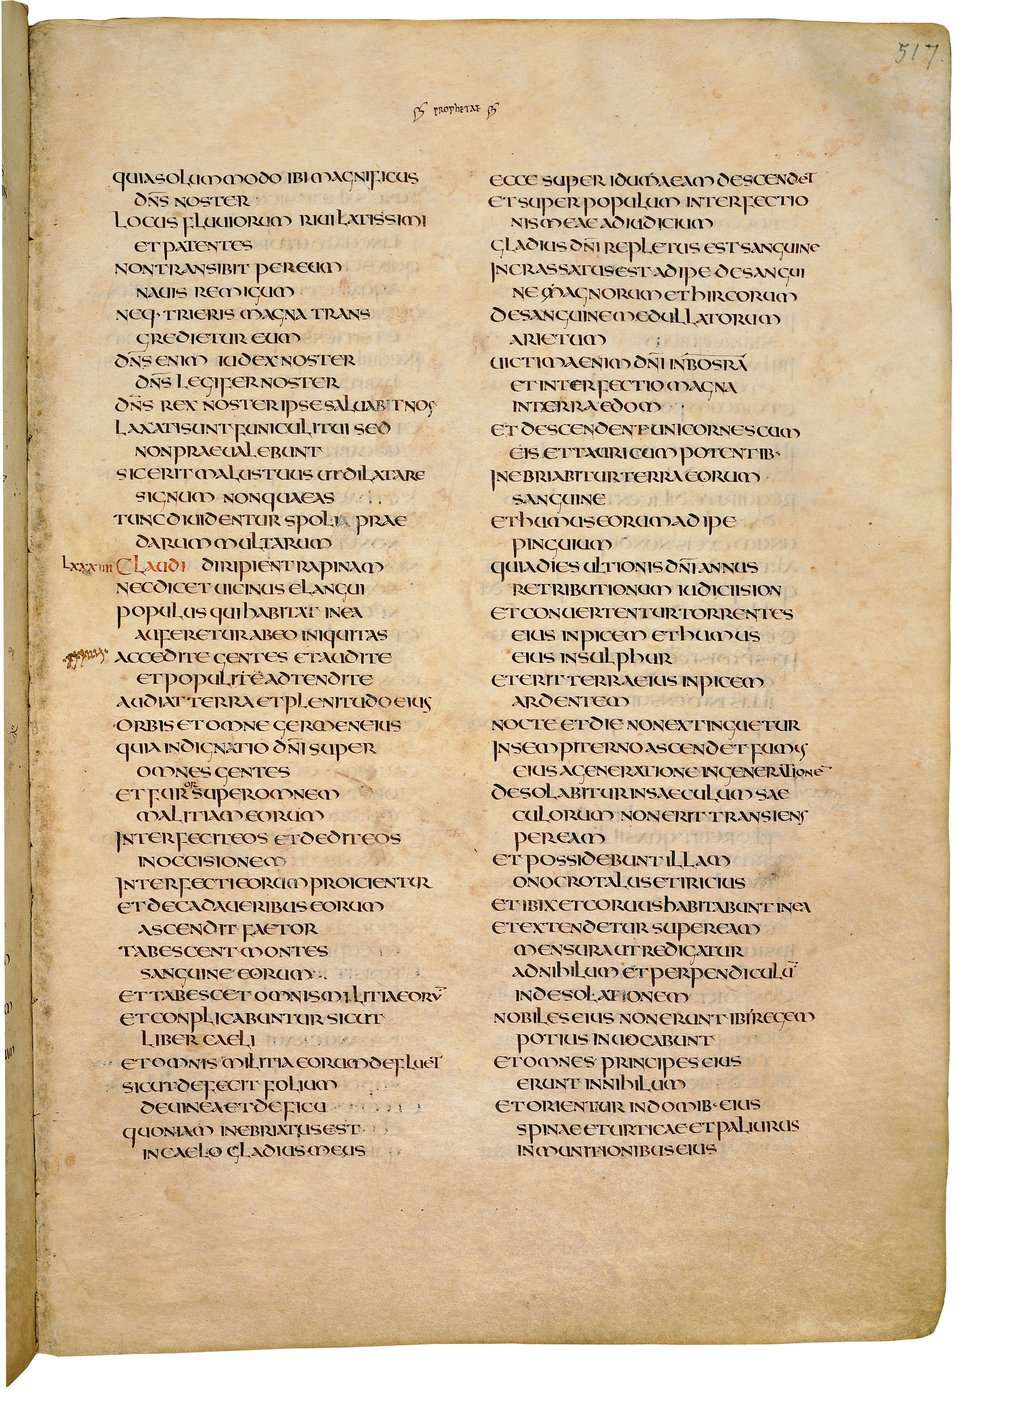 517
PROPHETAE
QUIA SOLUMMODO IBI MAGNIFICUS
DN̄S NOSTER
LOCUS FLUVIORUM RIUI LATISSIMI
ET PATENTES
NON TRANSIBIT PER EUM
NAUIS REMIGUM
NEQ· TRIERIS MAGNA TRANS
GREDIETUR EUM
DN̄S ENIM IUDEX NOSTER
DN̄S LEGIFER NOSTER
DN̄S REX NOSTER IPSE SALUABIT NOS
LAXATI SUNT FUNICULI TUI SED
NON PRAEUALEBUNT
SIC ERIT MALUS TUUS UT DILATARE
SIGNUM NON QUAEAS
TUNC DIUIDENTUR SPOLIA PRAE
DARUM MULTARUM
LXXXIIII CLAUDI DIRIPIENT RAPINAM
NEC DICET UICINUS ELANGUI
POPULUS QUI HABITAT IN EA
AUFERETUR AB EO INIQUITAS
ACCEDITE GENTES ET AUDITE
ET POPULI ADTENDITE
AUDIAT TERRA ET PLENITUDO EIUS
ORBIS ET OMNE GERMEN EIUS
QUIA INDIGNATIO DN̄I SUPER
OMNES GENTES
ET FUROR SUPER OMNEM
MALITIAM EORUM
INTERFECIT EOS ET DEDIT EOS
IN OCCISIONEM
INTERFECTI EORUM PROICIENTUR
ET DE CADAUERIBUS EORUM
ASCENDIT FAETOR
TABESCENT MONTES
SANGUINE EORUM
ET TABESCET OMNIS MILITIA EORŪ
ET CONPLICABUNTUR SICUT
LIBER CAELI
ET OMNIS MILITIA EORUM DEFLUET
SICUT DEFECIT FOLIUM
DE UINEA ET DE FICU
QUONIAM INEBRIATUS EST
IN CAELO GLADIUS MEUS
ECCE SUPER IDUMAEAM DESCENDET
ET SUPER POPULUM INTERFECTIO
NIS MEAE AD IUDICIUM
GLADIUS DN̄I REPLETUS EST SANGUINE
INCRASSATUS EST ADIPE DE SANGUI
NE MAGNORUM ET HIRCORUM
DE SANGUINE MEDULLATORUM
ARIETUM
UICTIMA ENIM DN̄I IN BOSRA
ET INTERFECTIO MAGNA
IN TERRA EDOM
ET DESCENDENT UNICORNES CUM
EIS ET TAURI CUM POTENTIB·
INEBRIABITUR TERRA EORUM
SANGUINE
ET HUMUS EORUM ADIPE
PINGUIUM
QUIA DIES ULTIONIS DN̄I ANNUS
RETRIBUTIONUM IUDICII SION
ET CONUERTENTUR TORRENTES
EIUS IN PICEM ET HUMUS
EIUS IN SULPHUR
ET ERIT TERRA EIUS IN PICEM
ARDENTEM
NOCTE ET DIE NON EXTINGUETUR
IN SEMPITERNO ASCENDET FUMUS
EIUS A GENERATIONE IN GENERATIONE
DESOLABITUR IN SAECULUM SAE
CULORUM NON ERIT TRANSIENS
PER EAM
ET POSSIDEBUNT ILLAM
ONOCROTALUS ET IRICIUS
ET IBIX ET CORUUS HABITABUNT IN EA
ET EXTENDETUR SUPER EAM
MENSURA UT REDIGATUR
AD NIHILUM ET PERPENDICULŪ
IN DESOLATIONEM
NOBILES EIUS NON ERUNT IBI REGEM
POTIUS INUOCABUNT
ET OMNES PRINCIPES EIUS
ERUNT IN NIHILUM
ET ORIENTUR IN DOMIB· EIUS
SPINAE ET URTICAE ET PALIURUS
IN MUNITIONIBUS EIUS